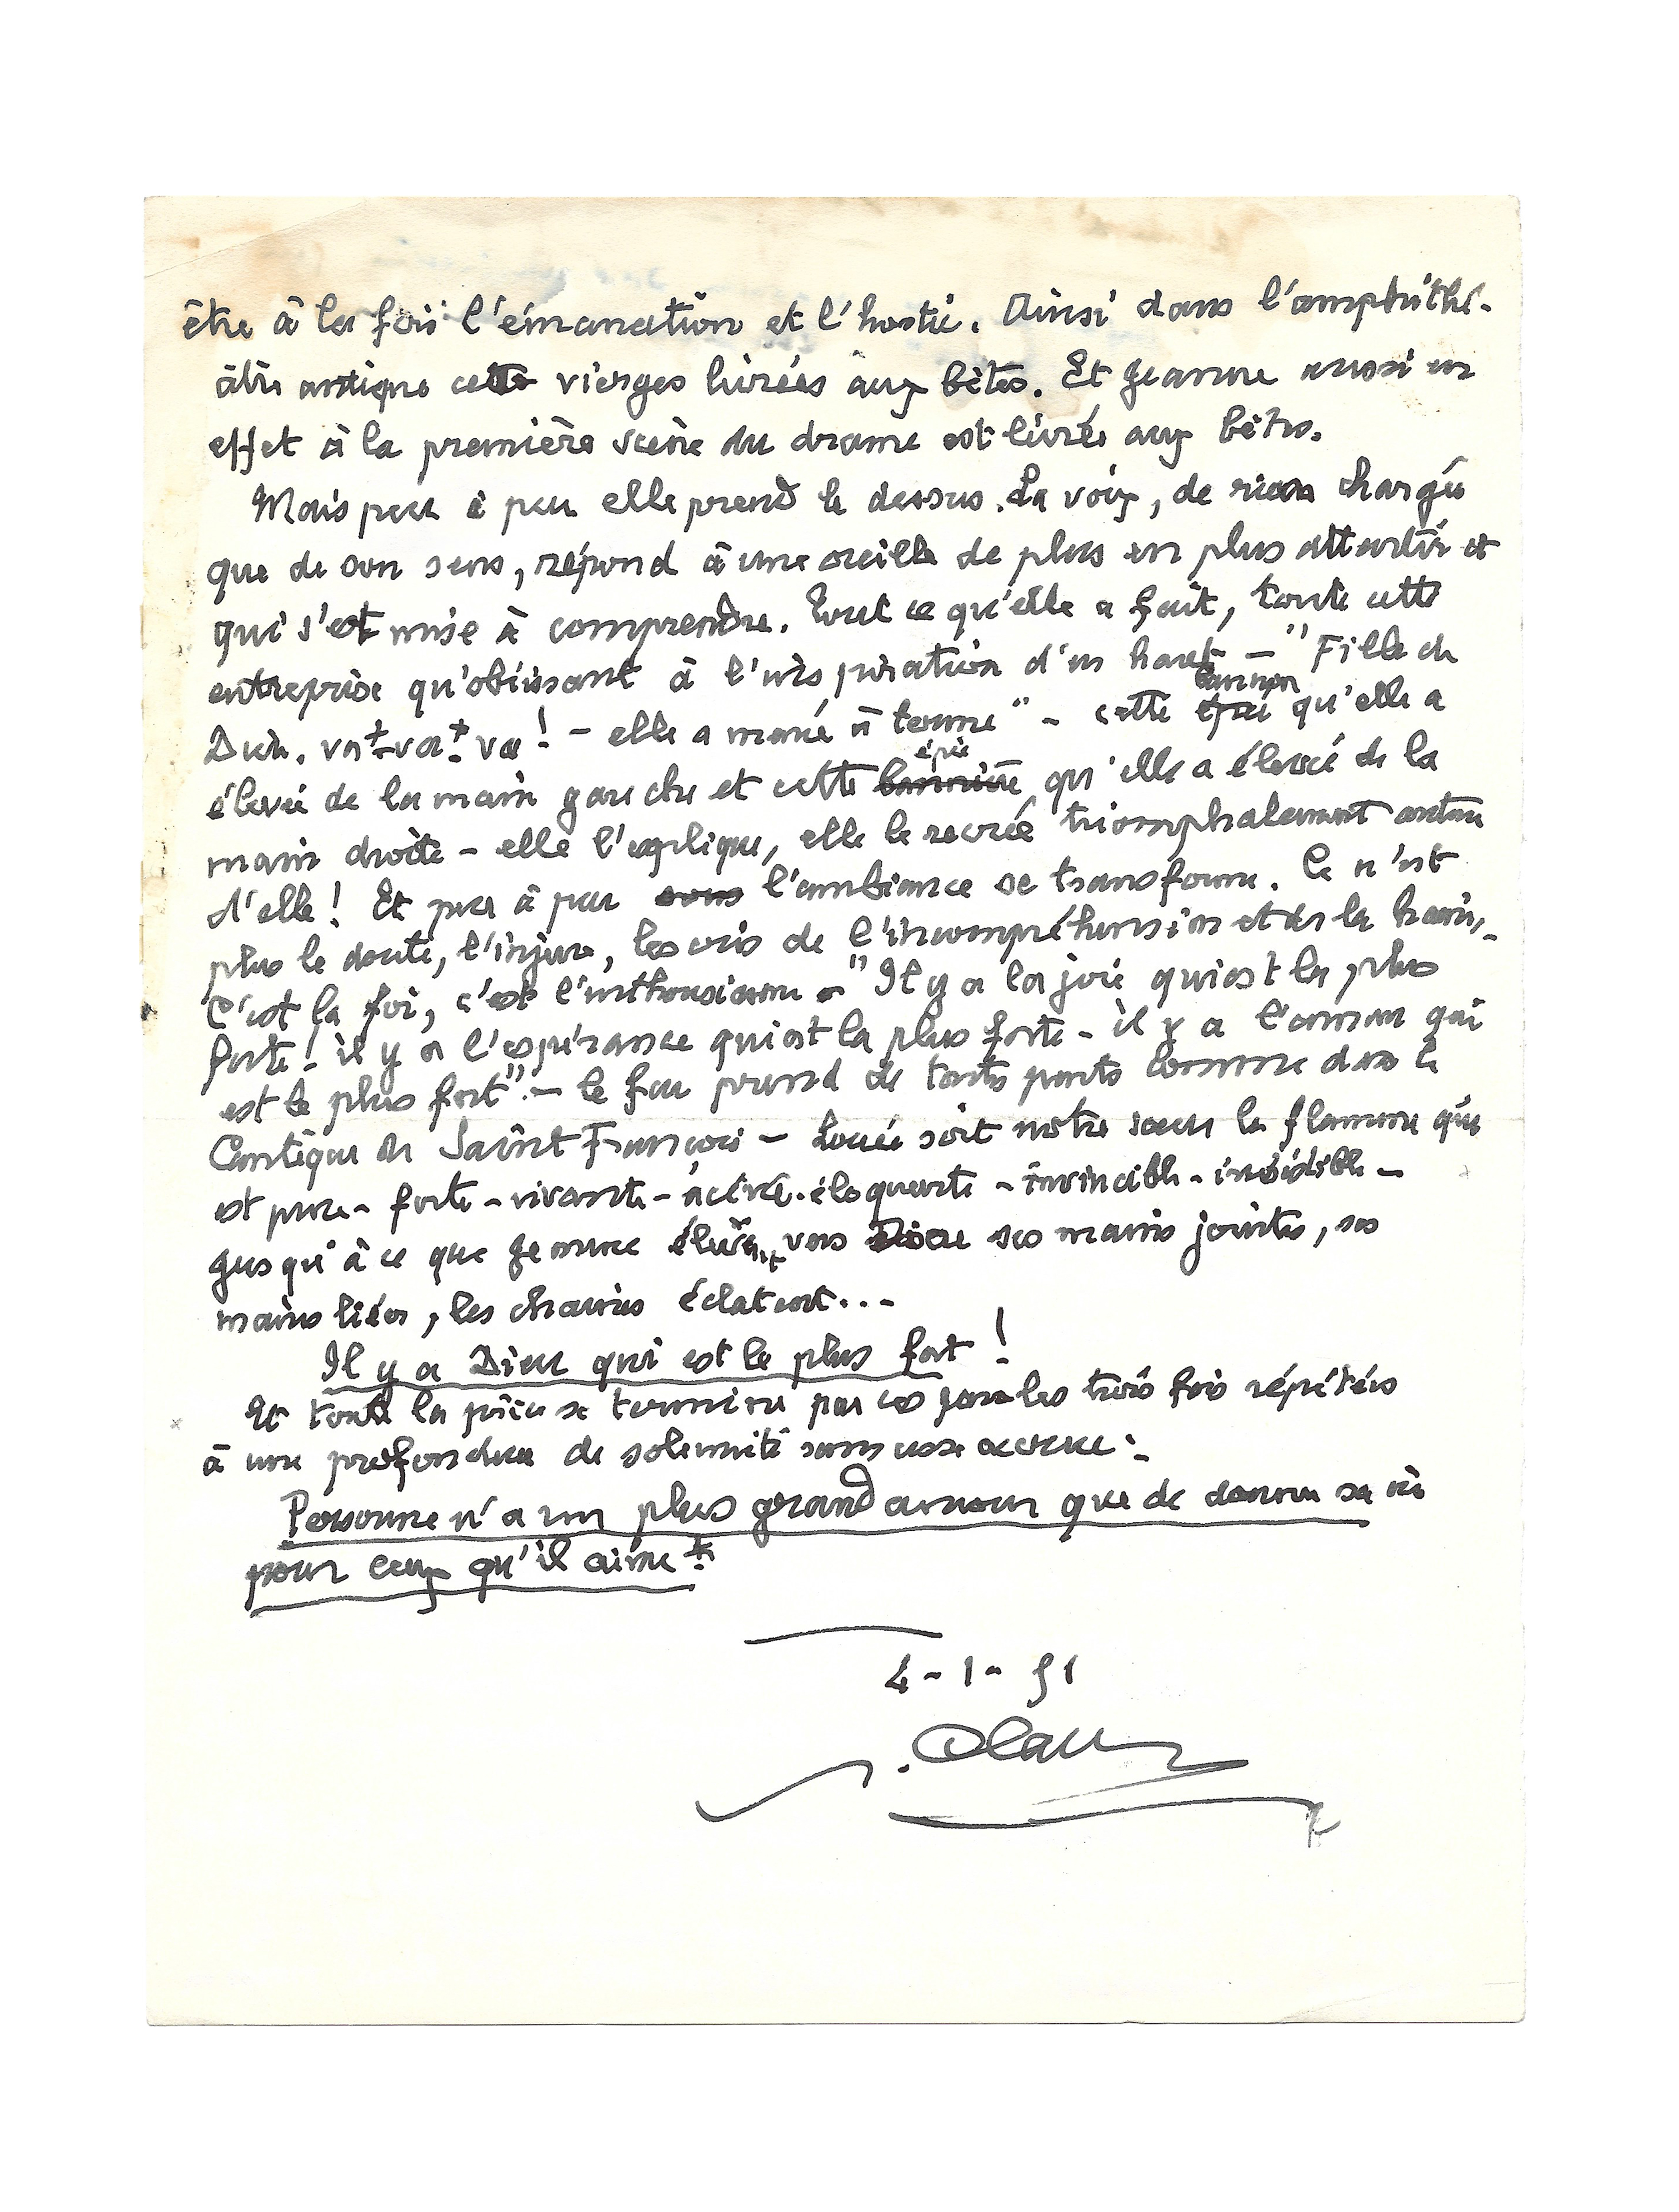 être à la fois l'émanation et l'hostie. Ainsi dans l'amphithé-
âtre antique cette vierges livrées aux bêtes. Et Jeanne aussi en
effet à la première scène du drame est livrée aux bêtes.
Mais peu à peu elle prend le dessus. La voix, de rien chargée
que de son sens, répond à une oreille de plus en plus attentive et
qui s'est mise à comprendre. Tout ce qu'elle a fait, toute cette
entreprise qu'obéissant à l'inspiration d'en haut - "Fille de
Dieu, va + va + va ! - elle a mené à terme" - cette épée qu'elle a
élevée de la main gauche et cette bannière épée qu'elle a élevée de la
main droite - elle l'explique, elle le recrée triomphalement autour
d'elle ! Et peu à peu sous l'ambiance se transforme. Ce n'est
plus le doute, l'injure, les cris de l'incompréhension et de la haine,
C'est la foi, c'est l'enthousiasme - "Il y a la joie qui est la plus
forte ! il y a l'espérance qui est la plus forte - il y a l'amour qui
est le plus fort". - le feu prend de toutes parts comme dans le
Cantique de Saint François - Louée soit notre soeur la flamme qui
est pure - forte - vivante - acérée - éloquente - invincible - irrésistible -
jusqu'à ce que Jeanne élevant vers Dieu ses mains jointes, ses
mains liées, les chaines éclatent...
Il y a Dieu qui est le plus fort !
Et toute la pièce se termine par ces paroles trois fois répétées
à une profondeur de solennité sans cesse accrue :
Personne n'a un plus grand amour que de donner sa vie
pour ceux qu'il aime
4-1-51